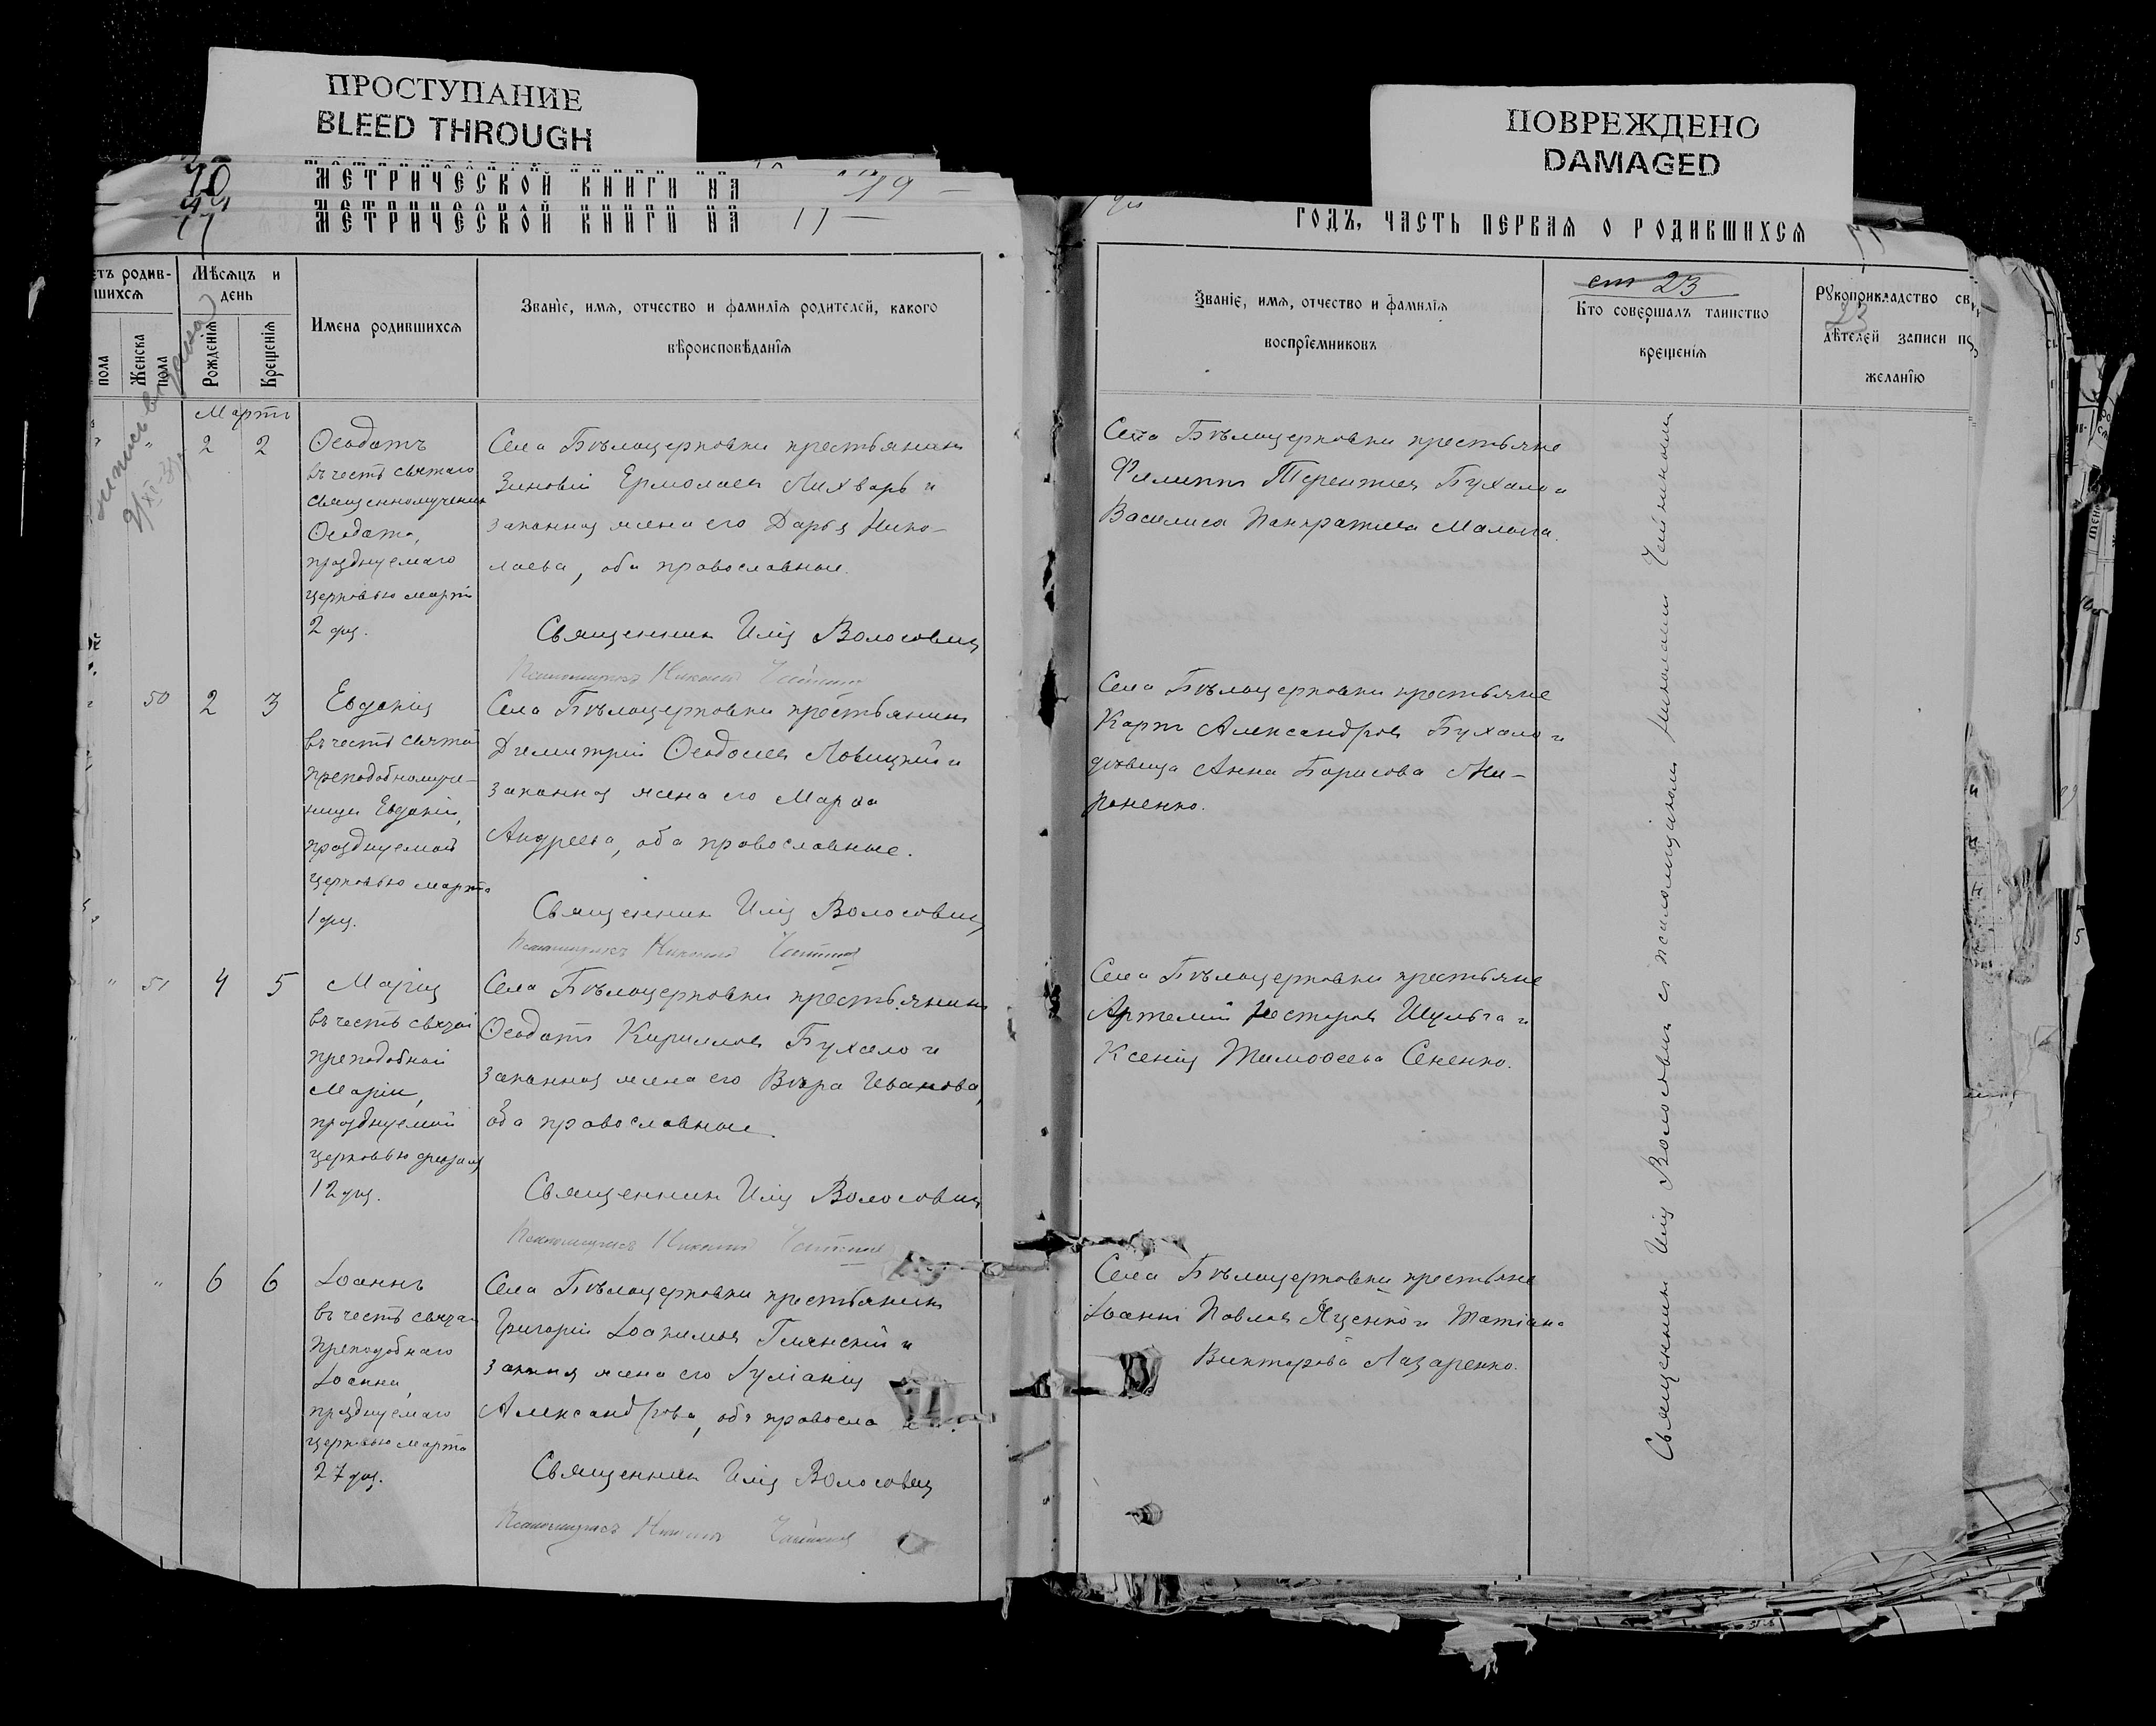 ПРОСТУПАНИЕ
BLEED THROUGH
ПОВРЕЖДЕНО
DAMAGED
МЕТРИЧЕСКОЙ КНИГИ НА
19
МЕТРИЧЕСКОЙ КНИГИ НА
17
ГОДЪ, ЧАСТЬ ПЕРВАЯ О РОДИВШИХСЯ
етъ родив-
шихся
пола
Женска
пола
Мѣсяцъ и
день
Рожденія
Крещенія
Имена родившихся
Званіе, имя, отчество и фамилія родителей, какого
вѣроисповѣданія
Званіе, имя, отчество и фамилія
воспріемниковъ
ст 23
Кто совершалъ таинство
крещенія
Рукоприкладство св
23
дѣтелей записи по
желанію
Мартъ
2
2
Ѳеодотъ
въ честь святаго
священномученик
Ѳеодота,
празднуемаго
церковью марта
2 дня.
Села Бѣлоцерковки крестьянинъ
Зиновій Ермолаевъ Лихварь и
законная жена его Дарья Нико-
лаева, оба православные.
Священникъ Илія Волосовичъ
Псаломщикъ Николай
Села Бѣлоцерковки крестьяне
Филиппъ Терентьевъ Бухало и
Василиса Панкратіева
50
2
3
Евдокія
въ честь святой
преподобномуче-
ницы Евдокіи,
празднуемой
церковью марта
1 дня.
Села Бѣлоцерковки крестьянинъ
Димитрій Ѳеодосіевъ Ловицкій и
законная жена его Марѳа
Андреева, оба православные.
Священникъ Илія Волосовичъ
Псаломщикъ Николай
Села Бѣлоцерковки крестьяне
Карпъ Александровъ Бухало и
дѣвица Анна Борисова
51
4
5
Марія
въ честь святой
преподобной
Маріи,
празднуемой
церковью февраля
12 дня.
Села Бѣлоцерковки крестьянинъ
Ѳеодотъ Кирилловъ Бухало и
законная жена его Вѣра Иванова,
оба православные.
Священникъ Илія Волосовичъ
Псаломщикъ Николай
Села Бѣлоцерковки крестьяне
Артемій Несторовъ Шульга и
Ксенія Тимоѳеева Сененко.
6
6
Іоаннъ
въ честь святаго
преподобнаго
Іоанна,
празднуемаго
церковью марта
27 дня.
Села Бѣлоцерковки крестьянинъ
Григорій Іоакимовъ Глянскій и
жена его Іуліанія
Александрова, оба правосла
Священникъ Илія Волосовичъ
Псаломщикъ Николай
Села Бѣлоцерковки крестьяне
Іоаннъ Павловъ Яценко и Татіана
Викторова Лазаренко.
Священникъ Илія Волосовичъ съ псаломщикомъ Николаемъ